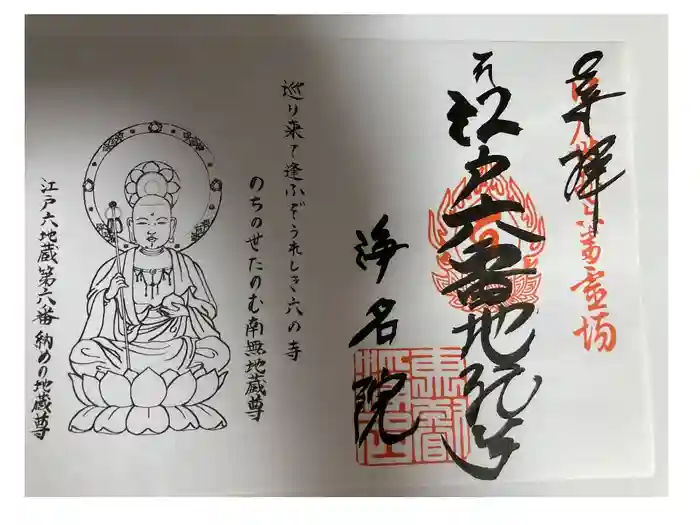 奉拝
番霊場
江戸六番地蔵尊
浄名院
巡り来て逢ふぞうれしき六の寺
のちのせたのむ南無地蔵尊
江戸六地蔵第六番納めり地蔵尊